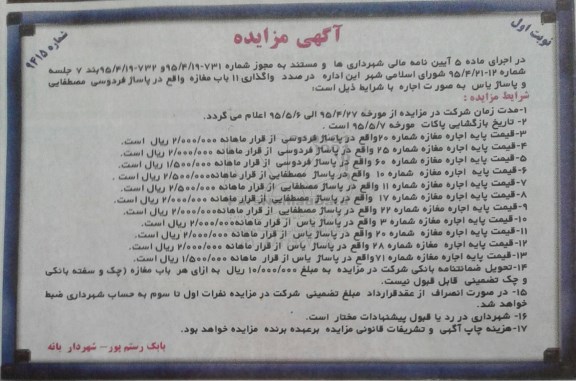 آگهی مزایده
نوبت اول
شماره ۹۴۱۵
در اجرای ماده ۵ آیین نامه مالی شهرداری ها و مستند به مجوز شماره ۷۳۱-۹۵/۴/۱۹و ۷۳۲-۹۵/۴/۱۹بند ۷ جلسه
شماره ۱۲-۹۵/۴/۲۱ شورای اسلامی شهر این اداره در صدد واگذاری ۱۱ باب مغازه واقع در پاساژ فردوسی مصطفایی
و پاساژ یاس به صورت اجاره با شرایط ذیل است:
شرایط مزایده :
۱-مدت زمان شرکت در مزایده از مورخه ۹۵/۴/۲۷ الی ۹۵/۵/۶ اعلام می گردد.
۲- تاریخ بازگشایی پاکات مورخه ۹۵/۵/۷ است .
۳-قیمت پایه اجاره مغازه شماره ۲۰واقع در پاساژ فردوسی از قرار ماهانه ۲/۰۰۰/۰۰۰ ریال است.
۴-قیمت پایه اجاره مغازه شماره ۲۵ واقع در پاساژ فردوسی از قرار ماهانه ۲/۰۰۰/۰۰۰ ریال است.
۵-قیمت پایه اجاره مغازه شماره ۶۰ واقع در پاساژ فردوسی از قرار ماهانه ۱/۵۰۰/۰۰۰ ریال است.
۶-قیمت پایه اجاره مغازه شماره ۱۰ واقع در پاساژ مصطفایی از قرار ماهانه۲/۵۰۰/۰۰۰ ریال است .
۷-قیمت پایه اجاره مغازه شماره ۱۱ واقع در پاساژ مصطفایی از قرار ماهانه ۲/۵۰۰/۰۰۰ ریال است.
۸-قیمت پایه اجاره مغازه شماره ۱۷ واقع در پاساژ مصطفایی از قرار ماهانه ۲/۰۰۰/۰۰۰ ریال است.
۹-قیمت پایه اجاره مغازه شماره ۲۲ واقع در پاساژ مصطفایی از قرار ماهانه۲/۰۰۰/۰۰۰ ریال است.
۱۰-قیمت پایه اجاره مغازه شماره ۳ واقع در پاساژ یاس از قرار ماهانه۲/۰۰۰/۰۰۰ ریال است.
۱۱-قیمت پایه اجاره مغازه شماره ۲۰ واقع در پاساژ یاس از قرار ماهانه ۲/۰۰۰/۰۰۰ ریال است.
۱۲-قیمت پایه اجاره مغازه شماره ۲۸ واقع در پاساژ یاس از قرار ماهانه ۲/۰۰۰/۰۰۰ ریال است.
۱۳-قیمت پایه اجاره مغازه شماره ۷۱واقع در پاساژ یاس از قرار ماهانه ۱/۵۰۰/۰۰۰ ریال است.
۱۴-تحویل ضمانتنامه بانکی شرکت در مزایده به مبلغ ۱۰/۰۰۰/۰۰۰ ریال به ازای هر باب مغازه (چک و سفته بانکی
و چک تضمینی قابل قبول نیست.
۱۵- در صورت انصراف از عقدقرارداد مبلغ تضمینی شرکت در مزایده نفرات اول تا سوم به حساب شهرداری ضبط
خواهد شد.
۱۶- شهرداری در رد یا قبول پیشنهادات مختار است.
۱۷-هزینه چاپ آگهی و تشریفات قانونی مزایده برعهده برنده مزایده خواهد بود.
بابک رستم پور- شهردار بانه